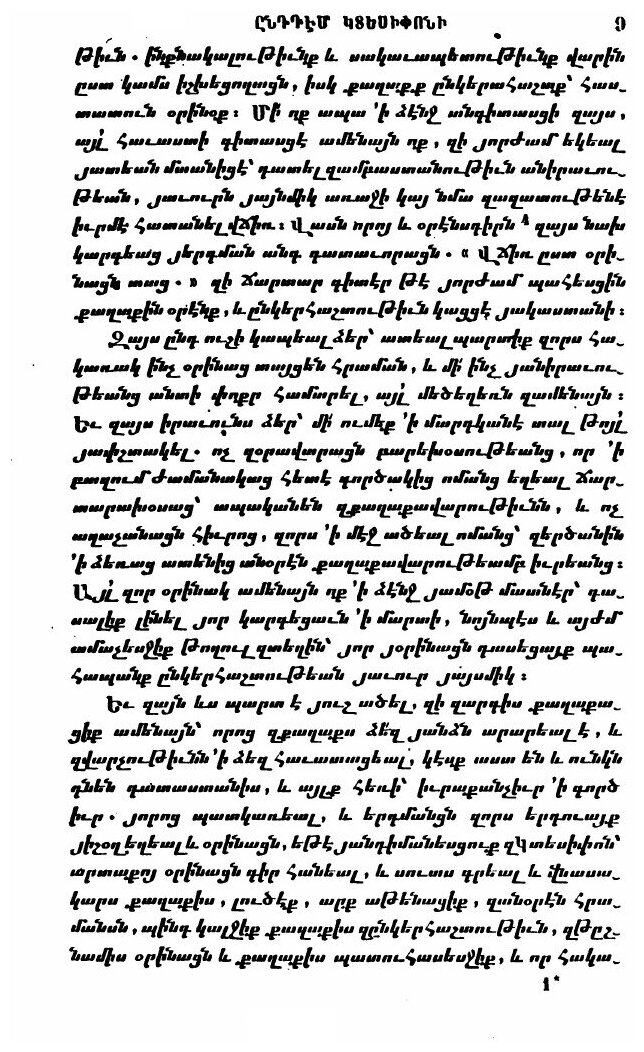 ԸՆԴԴԷՄ ԿՏԵՍԻՓՈՆԻ 9
թիւն. ինքնակալութիւնք և սակաւապետութիւնք վարին
ըստ կամս իշխեցողացն, իսկ քաղաքք ընկերահաշտք՝ հաս_
տատուն օրինօք։ Մի ոք ապա ՚ի ձէնջ անգիտասցի զայս,
այլ հաւաստի գիտասցէ ամենայն ոք, զի յորժամ եկեալ
յատեան մտանիցէ՝ դատել զամբաստանութիւն անիրաւու_
թեան, յաւուրն յայնմիկ առաջի կայ նմա զազատութենէ
իւրմէ հատանել վճիռ։ Վասն որոյ և օրէնսդիրն ՛ զայս նախ
կարգեաց յերդման անդ դատաւորացն. « Վճիռ ըստ օրի_
նացն տաց. » զի ճարտար գիտէր թէ յորժամ պահեսցին
քաղաքին օրէնք, և ընկերհաշտութիւն կացցէ յակաստանի։
Զայս ընդ ուշի կապեալ ձեր՝ ատեալ պարտիք զորս հա_
կառակ ինչ օրինաց տայցեն հրաման, և մի՛ ինչ յանիրաւու_
թեանց անտի փոքր համարել, այլ մեծեղեռն զամենայն։
Եւ զայս իրաւունս ձեր՝ մի՛ ումեք ՚ի մարդկանէ տալ թոյլ
յափշտակել. ոչ զօրավարացն բարեխօսութեանց, որ ՚ի
բազում ժամանակաց հետէ գործակից ոմանց եղեալ ճար_
տարախօսաց՝ ապականեն զքաղաքավարութիւնն, և ոչ
աղաչանացն հիւրոց, զորս ՚ի մէջ ածեալ ոմանց՝ զերծանին
՚ի ձեռաց ատենից անօրէն քաղաքավարութեամբ իւրեանց։
Այլ զոր օրինակ ամենայն ոք ՚ի ձէնջ յամօթ մասնէր՝ դա_
սալիք լինել յոր կարգեցաւն ՚ի մարտի, նոյնպէս և այժմ
ամաչեսջիք թողուլ զտեղին՝ յոր յօրինացն դասեցայք պա_
հապանք ընկերհաշտութեան յաւուր յայսմիկ։
Եւ զայն ևս պարտ է յուշ ածել, զի զարդիս քաղաքա_
ցիք ամենայն՝ որոց զքաղաքս ձեզ յանձն արարեալ է, և
զվարչութիւնն ՚ի ձեզ հաւատացեալ, կէսք աստ են և ունկն
դնեն դատաստանիս, և այլք հեռի՝ իւրաքանչիւր ՚ի գործ
իւր. յորոց պատկառեալ, և երդմանցն զորս երդուայք
յիշօղ եղեալ և օրինացն, եթէ յանդիմանեսցուք զԿտեսիփոն՝
արտաքոյ օրինացն գիր հանեալ, և սուտս գրեալ և վնասա_
կարս քաղաքիս, լուծէք, արք աթենացիք, զանօրէն հրա_
մանսն, պինդ կալջիք քաղաքիս զընկերհաշտութիւն, զթըշ_
նամիս օրինացն և քաղաքիս պատուհասեսջիք, և որ հակա_
1*